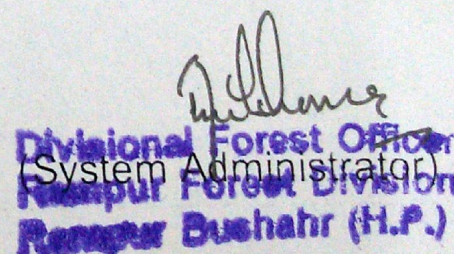 Divisional Forest Officer
(System Administrator)
Rampur Forest Division
Rampur Bushahr (H.P.)